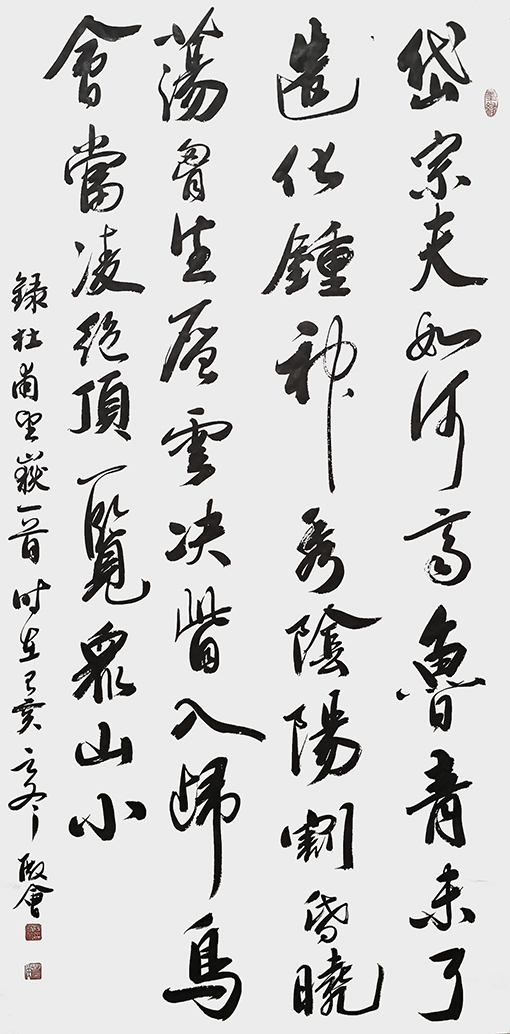 岱宗夫如何齊魯青未了
造化鍾神秀陰陽割昏曉
蕩胷生層雲决眥入歸鳥
會當凌絕頂一覽眾山小
録杜甫望嶽一首時在己亥冬會